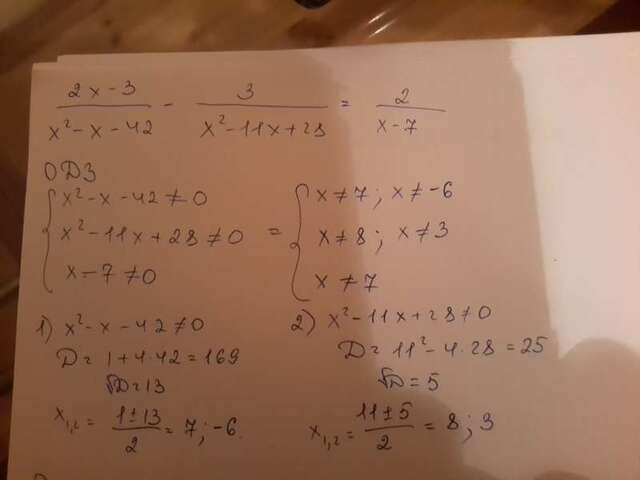 (2x-3)/(x²-x-42) - 3/(x²-11x+28) = 2/(x-7)
ОДЗ
{ x²-x-42≠0 = { x≠7; x≠-6
x²-11x+28≠0 x≠8; x≠3
x-7≠0 x≠7
1) x²-x-42≠0
D=1+4·42=169
√D=13
x₁,₂= (1±13)/2 = 7; -6.
2) x²-11x+28≠0
D=11²-4·28=25
√D=5
x₁,₂= (11±5)/2 = 8; 3